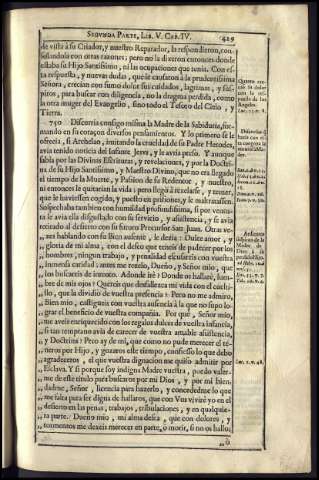 SEGUNDA PARTE, LIB. V. CAP. IV. 429
de vista à su Criador, y nuestro Reparador, la respondieron, con-
solandola con otras razones; pero no la dieron entonces donde
estaba su Hijo Santissimo, ni las ocupaciones que tenia. Con es-
ta respuesta, y nuevas dudas, que le causaron à la prudentissima
Señora, crecian con sumo dolor sus cuidados, lagrimas, y sus-
piros, para buscar con diligencia, no la dragma perdida, como
la otra muger del Evangelio, sino todo el Tesoro del Cielo, y
Tierra.
750 Discurria consigo misma la Madre de la Sabiduria, for-
mando en su coraçon diversos pensamientos. Y lo primero se le
ofreciò, si Archelao, imitando la crueldad de su Padre Herodes,
avia tenido noticia del Infante Jesus, y le avia preso. Y aunque
sabia por las Divinas Escrituras, y revelaciones, y por la Doctri-
na de su Hijo Santissimo, y Maestro Divino, que no era llegado
el tiempo de la Muerte, y Passion de su Redemtor, y nuestro,
ni entonces le quitarian la vida; pero llegò à rezelarse, y temer,
que le huviessen cogido, y puesto en prisiones, y le maltratassen.
Sospechaba tambien con humildad profundissima, si por ventu-
ra le avia ella disgustado con su servicio, y assistencia, y se avia
retirado al desierto con su futuro Precursor San Juan. Otras ve-
zes hablando con su Bien ausente, le decia: Dulce amor, y
„ gloria de mi alma, con el deseo que teneis de padecer por los
„ hombres, ningun trabajo, y penalidad escusareis con vuestra
„ inmensa caridad; antes me rezelo, Dueño, y Señor mio, que
„ los buscareis de intento. Adonde irè? Donde os hallarè, lum-
„ bre de mis ojos? Quereis que desfallezca mi vida con el cuchi-
„ llo, que la dividiò de vuestra presencia? Pero no me admiro,
„ Bien mio, castigueis con vuestra ausencia à la que no supo lo-
„ grar el beneficio de vuestra compañia. Por què, Señor mio,
„ me aveis enriquecido con los regalos dulces de vuestra infancia,
„ si tan temprano avia de carecer de vuestra amable assistencia,
„ y Doctrina? Pero ay de mi, que como no pude merecer el te-
„ neros por Hijo, y gozaros este tiempo, confiesso lo que debo
„ agradeceros el que vuestra dignacion me quiso admitir por
„ Esclava. Y si porque soy indigna Madre vuestra, puedo valer-
„ me de este titulo para buscaros por mi Dios, y por mi bien,
„ dadme, Señor, licencia para hazerlo, y concededme lo que
„ me falta para ser digna de hallaros, que con Vos vivirè yo en el
„ desierto en las penas, trabajos, tribulaciones, y en qualquie-
„ ra parte. Dueño mio, mi alma desea, que con dolores, y
„ tormentos me dexeis merecer en parte, ò morir, si no os hallo,
„ ò